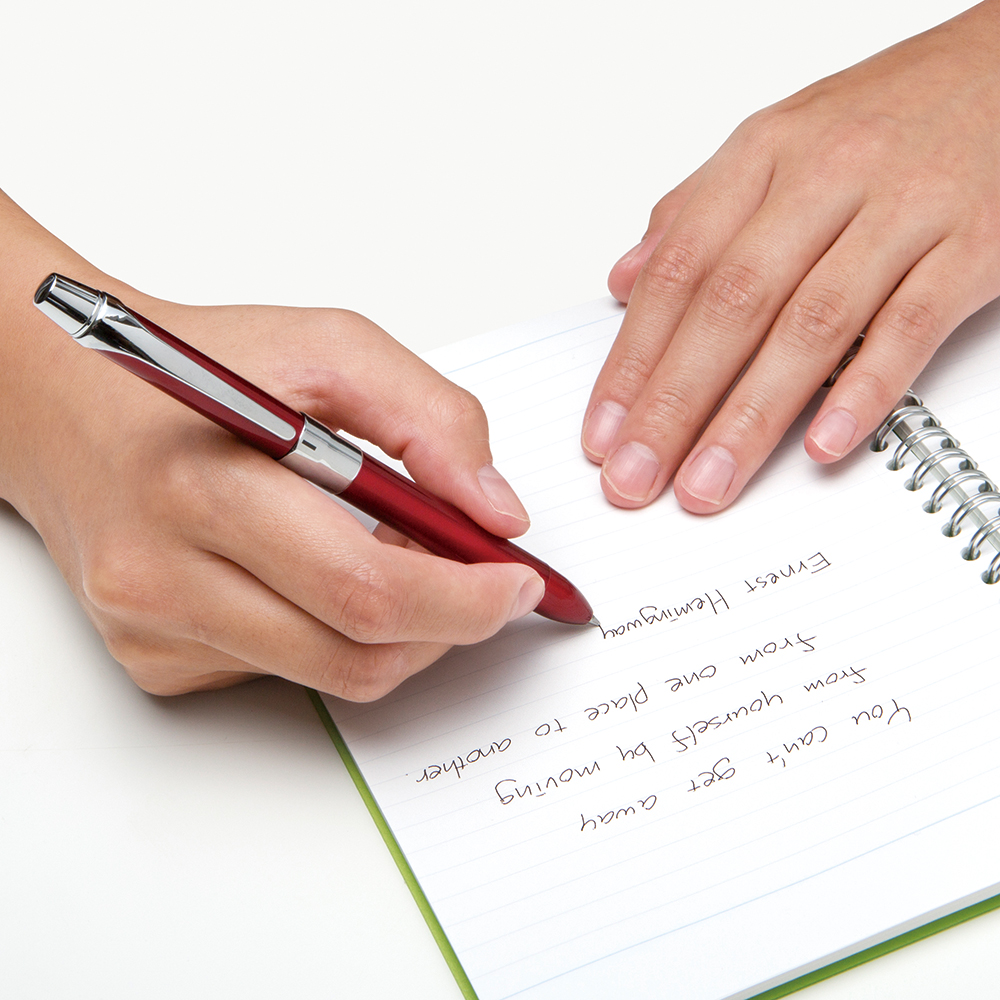 You can't get away
from yourself by moving
from one place to another.
Ernest Hemingway